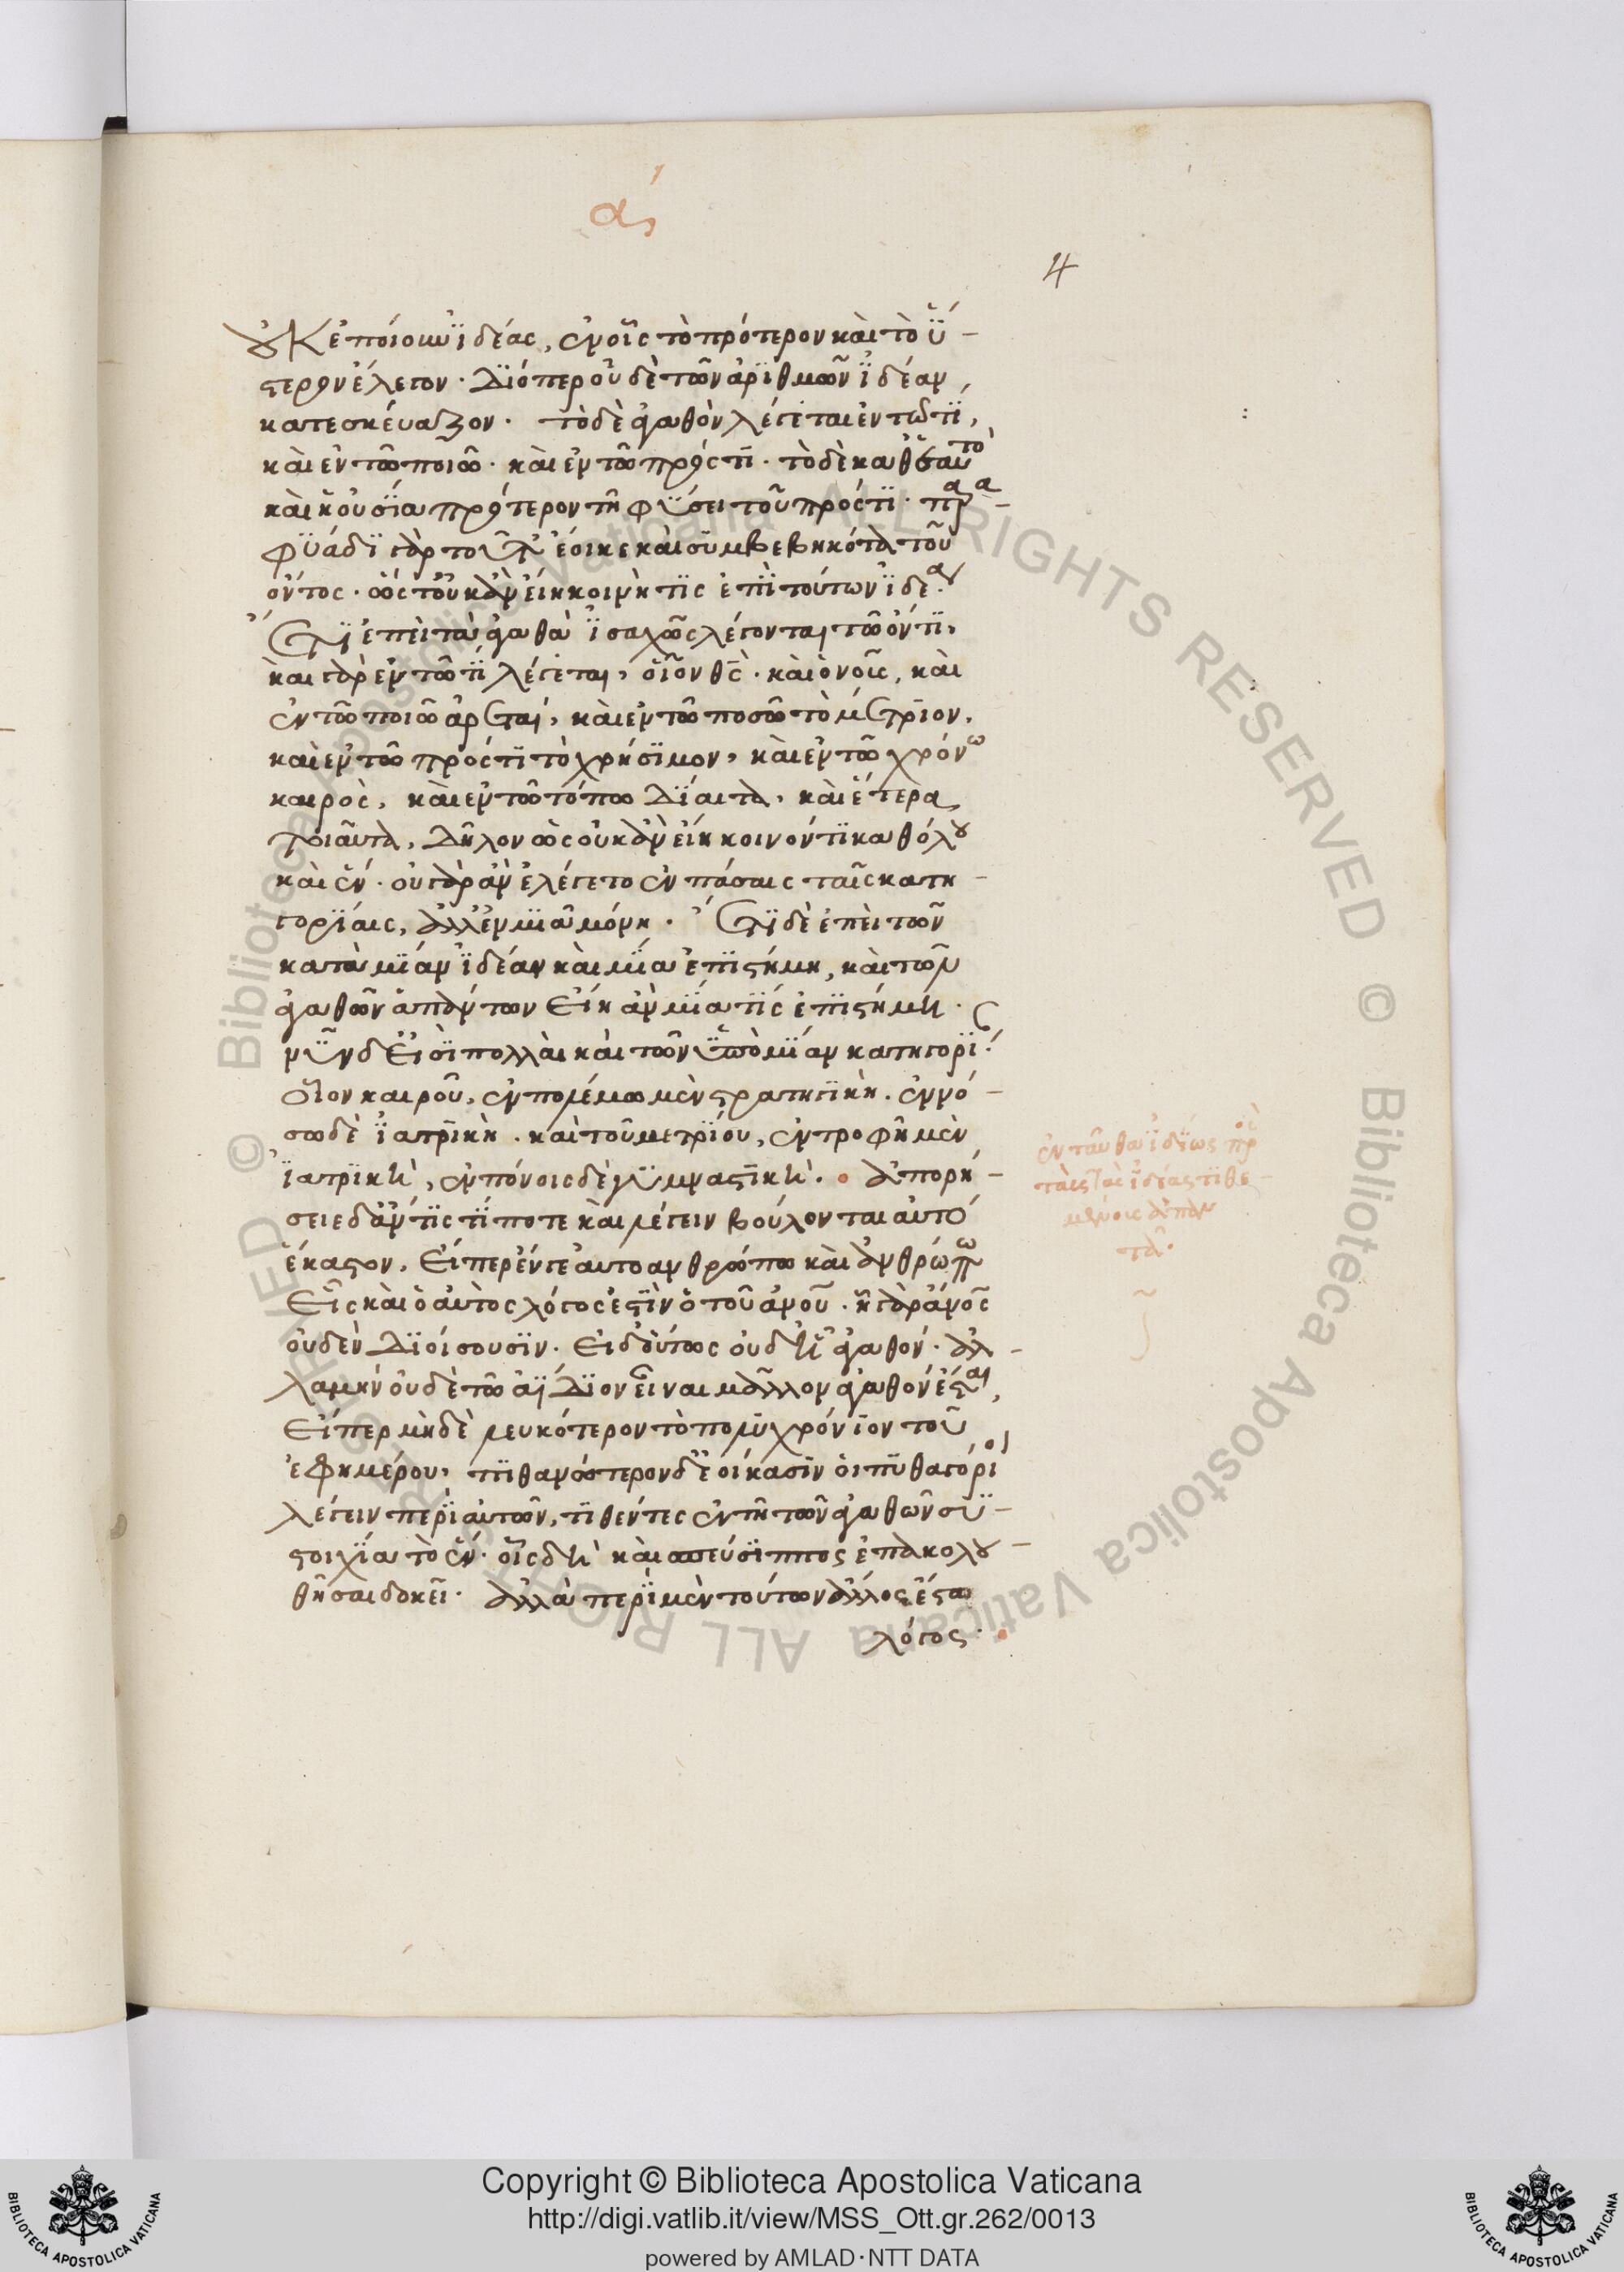 α
4
οὐκ ἐποίουν ἰδέας, ἐν οἷς τὸ πρότερον καὶ τὸ ὕ-
στερον ἔλεγον. Διόπερ οὐδὲ τῶν ἀριθμῶν ἰδέαν
κατεσκεύαζον. τὸ δὲ ἀγαθὸν λέγεται ἐν τῷ τί,
καὶ ἐν τῷ ποιῷ. καὶ ἐν τῷ πρός τι. τὸ δὲ καθ' αὑτὸ
καὶ ἡ οὐσία πρότερον τῇ φύσει τοῦ πρός τι. παρα-
φυάδι γὰρ τοῦτ' ἔοικε καὶ συμβεβηκότα τοῦ
ὄντος. ὥστ' οὐκ ἂν εἴη κοινή τις ἐπὶ τούτων ἰδέα.
Ἔτι ἐπεὶ τἀγαθὰ ἰσαχῶς λέγονται τῷ ὄντι,
καὶ γὰρ ἐν τῷ τί λέγεται, οἷον θς. καὶ ὁ νοῦς, καὶ
ἐν τῷ ποιῷ ἀρεταί, καὶ ἐν τῷ ποσῷ τὸ μέτριον,
καὶ ἐν τῷ πρός τι τὸ χρήσιμον, καὶ ἐν τῷ χρόνω
καιρὸς, καὶ ἐν τῷ τόπω Δίαιτα, καὶ ἕτερα
τοιαῦτα, Δῆλον ὡς οὐκ ἂν εἴη κοινόν τι καθόλου
καὶ ἕν. οὐ γὰρ ἂν ἐλέγετο ἐν πάσαις ταῖς κατη-
γορίαις, ἀλλ' ἐν μιᾷ μόνη. Ἔτι δὲ ἐπεὶ τῶν
κατὰ μίαν ἰδέαν καὶ μία ἐπιστήμη, καὶ τῶν
ἀγαθῶν ἁπάντων εἴη ἂν μία τις ἐπιστήμη.
νῦν δ' εἰσὶ πολλαὶ καὶ τῶν ὑπὸ μίαν κατηγορί.
οἷον καιροῦ, ἐν πολέμω μὲν στρατηγικὴ. ἐν νό-
σω δὲ ἰατρικὴ. καὶ τοῦ μετρίου, ἐν τροφῇ μὲν
ἰατρικὴ, ἐν πόνοις δὲ γυμναστικὴ. ἀπορή-
σειε δ' ἄν τις τί ποτε καὶ λέγειν βούλονται αὐτὸ
ἕκαστον, Εἴπερ ἔν γε αὐτοανθρώπω καὶ ἀνθρώπω
Εἷς καὶ ὁ αὐτὸς λόγος ἐστὶν ὁ τοῦ ἀνου. ᾗ γὰρ ἄνος
οὐδὲν Διοίσουσιν. Εἰ δ' οὕτως οὐδ' ᾗ ἀγαθόν. ἀλ-
λὰ μὴν οὐδὲ τῷ ἀΐδιον εἶναι μᾶλλον ἀγαθὸν ἔσται,
Εἴπερ μηδὲ λευκότερον τὸ πολυχρόνιον τοῦ
ἐφημέρου, πιθανώτερον δ' ἐοίκασιν οἱ πυθαγόριοι
λέγειν περὶ αὐτῶν, τιθέντες ἐν τῇ τῶν ἀγαθῶν συ-
στοιχία τὸ ἕν. οἷς δὴ καὶ σπεύσιππος ἐπακολου-
θῆσαι δοκεῖ. ἀλλὰ περὶ μὲν τούτων ἄλλος ἔστω
λόγος.
ἐνταῦθα ἰδίως πρ
τὰς ἰδέας τιθε-
μένους
Copyright © Biblioteca Apostolica Vaticana
http://digi.vatlib.it/view/MSS_Ott.gr.262/0013
powered by AMLAD·NTT DATA
BIBLIOTECA APOSTOLICA VATICANA
BIBLIOTECA APOSTOLICA VATICANA
© Biblioteca Apostolica Vaticana ALL RIGHTS RESERVED © Biblioteca Apostolica Vaticana ALL RIGHTS RESERVED